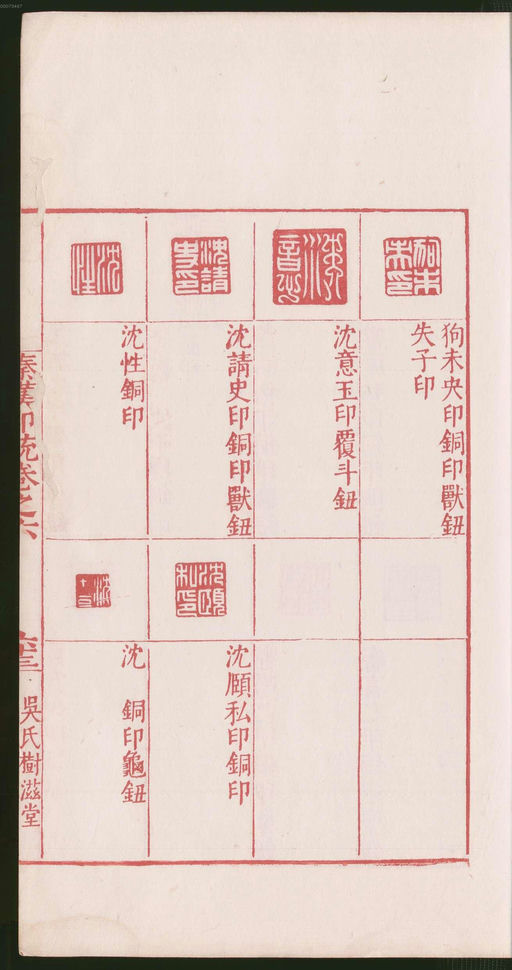 狥未央印銅印獸鈕
失子印
沈意玉印覆斗鈕
沈請史印銅印獸鈕
沈性銅印
沈頤私印銅印
沈　銅印龜鈕
秦漢印統卷之六
六三
吳氏樹滋堂
00073467